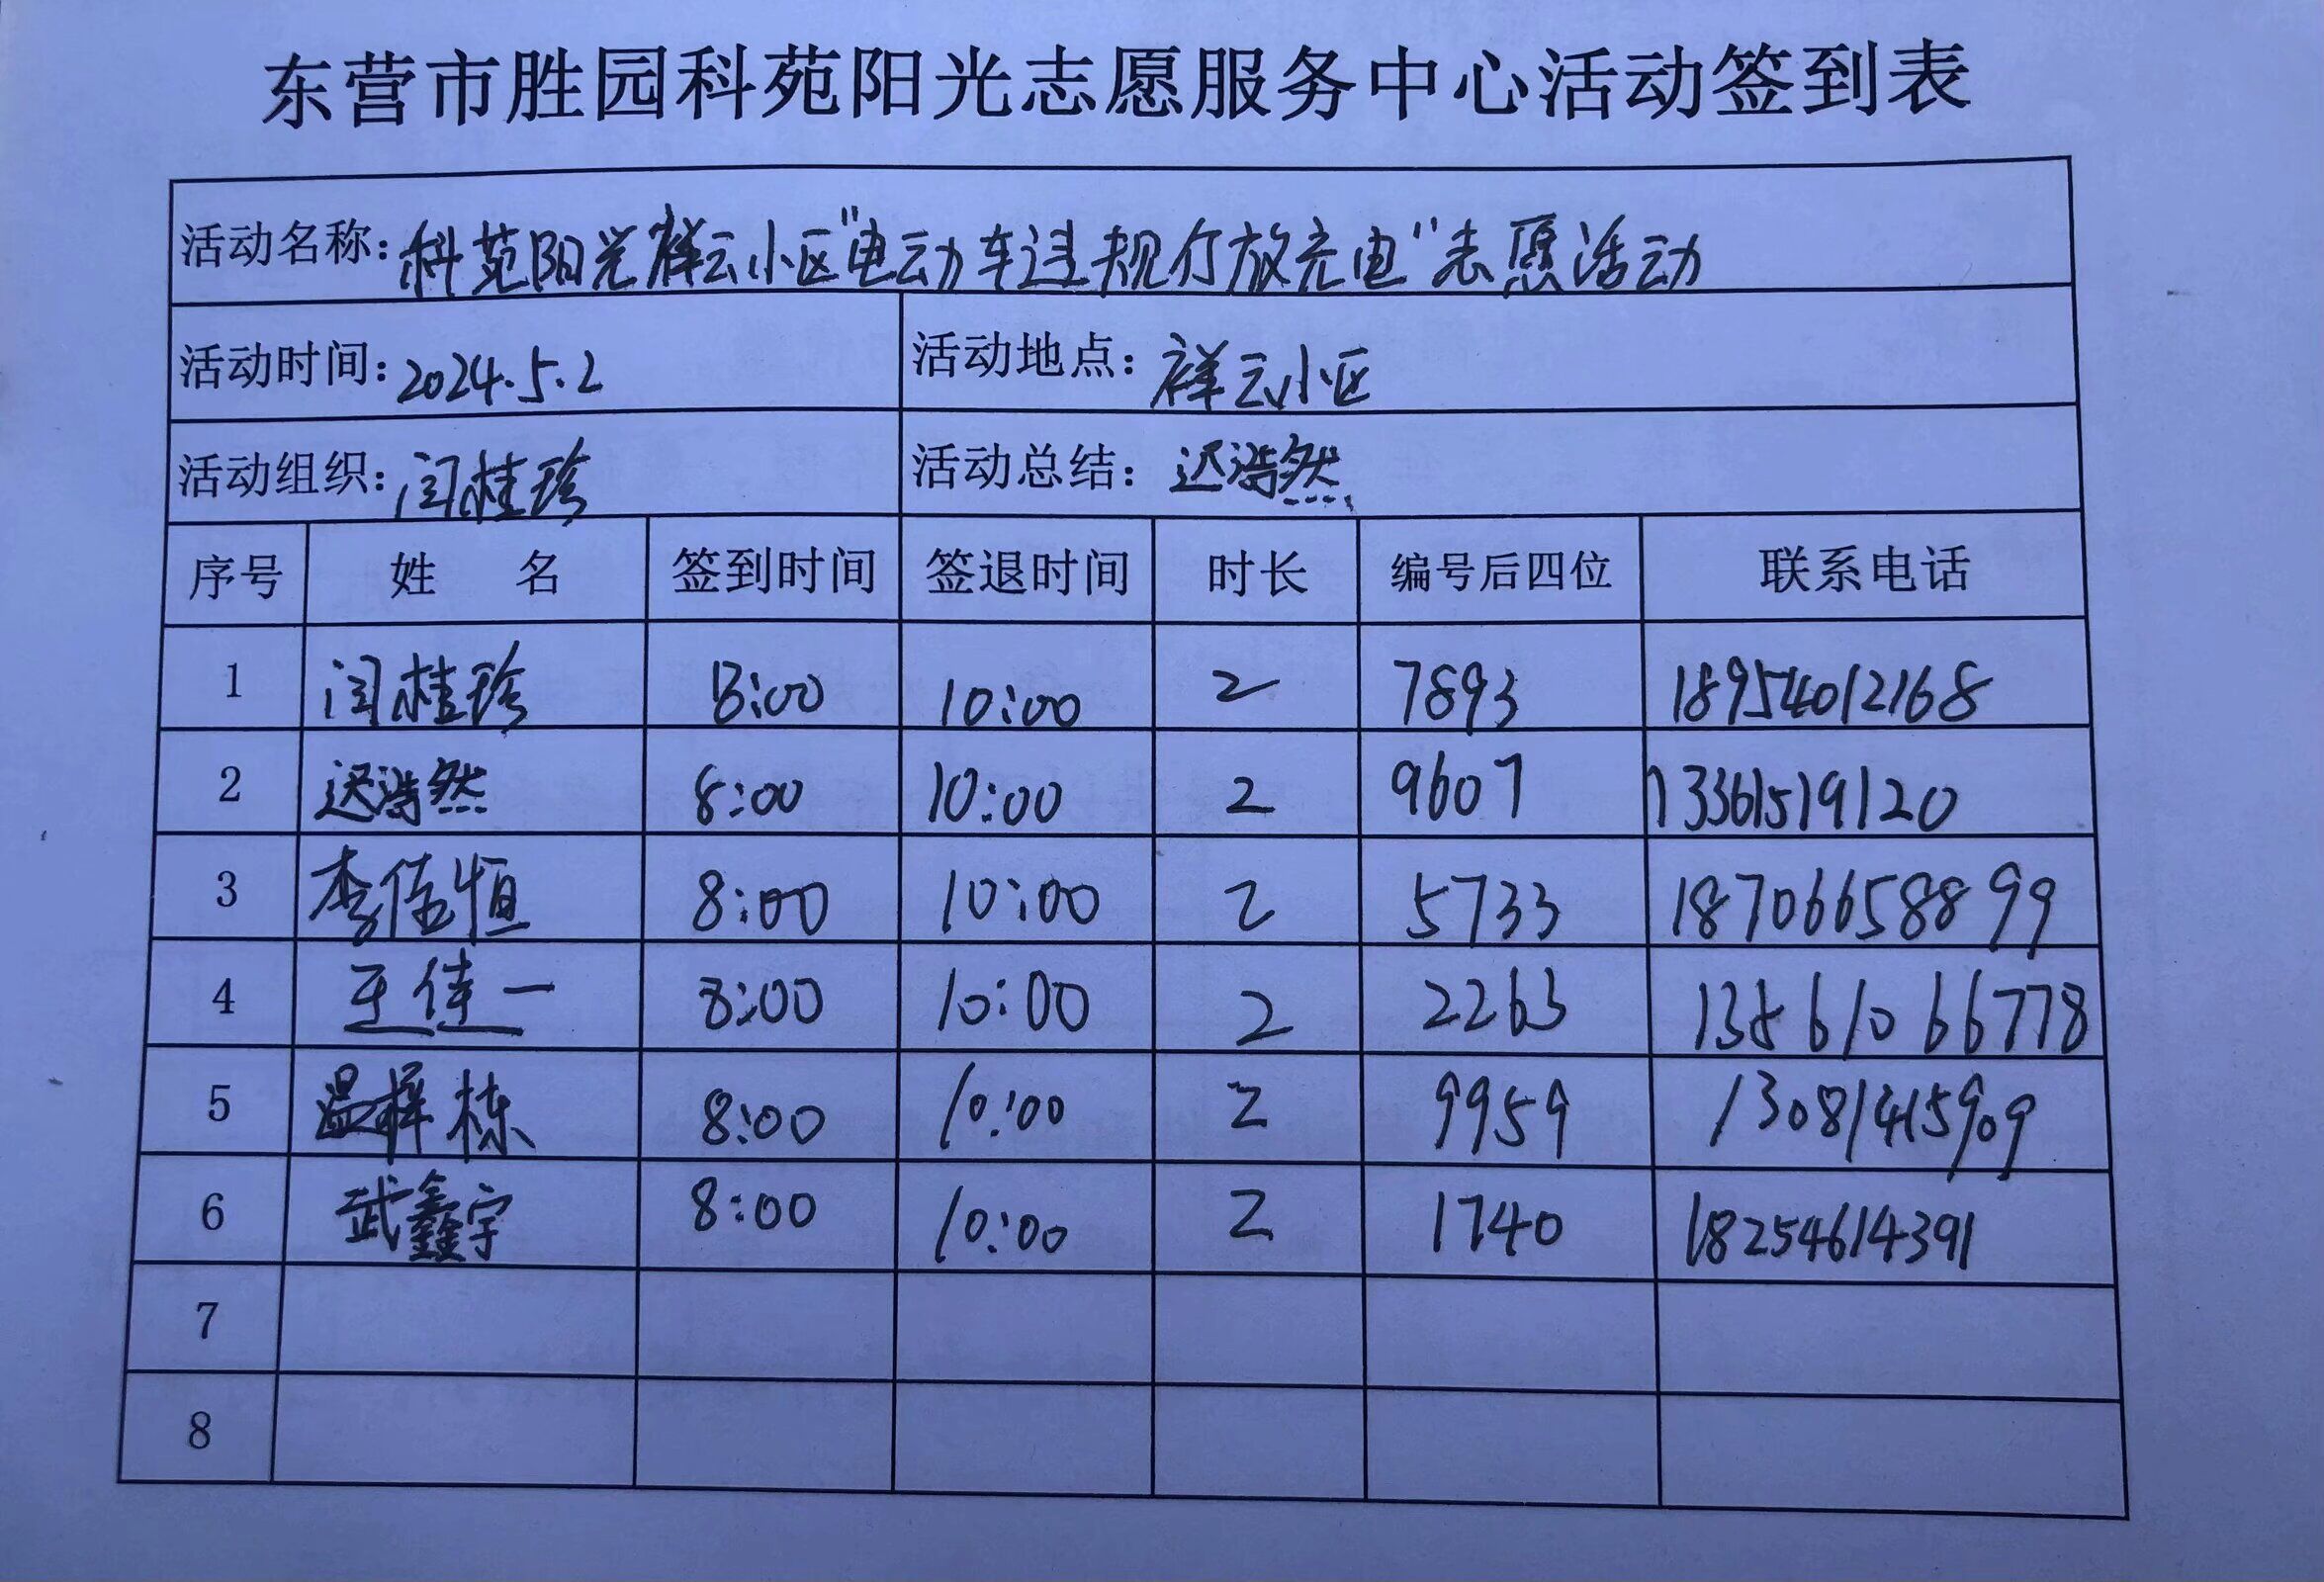 东营市胜园科苑阳光志愿服务中心活动签到表
活动名称：科苑阳光祥云小区"电动车违规停放充电"志愿活动
活动时间：2024.5.2 活动地点：祥云小区
活动组织：闫桂珍 活动总结：迟浩然
序号 姓名 签到时间 签退时间 时长 编号后四位 联系电话
1 闫桂珍 8:00 10:00 2 7893 18954012168
2 迟浩然 8:00 10:00 2 9607 13361519120
3 李佰恒 8:00 10:00 2 5733 18706658899
4 王佳一 8:00 10:00 2 2263 13561066778
5 温梓栋 8:00 10:00 2 9959 13081415909
6 武鑫宇 8:00 10:00 2 1740 18254614391
7
8